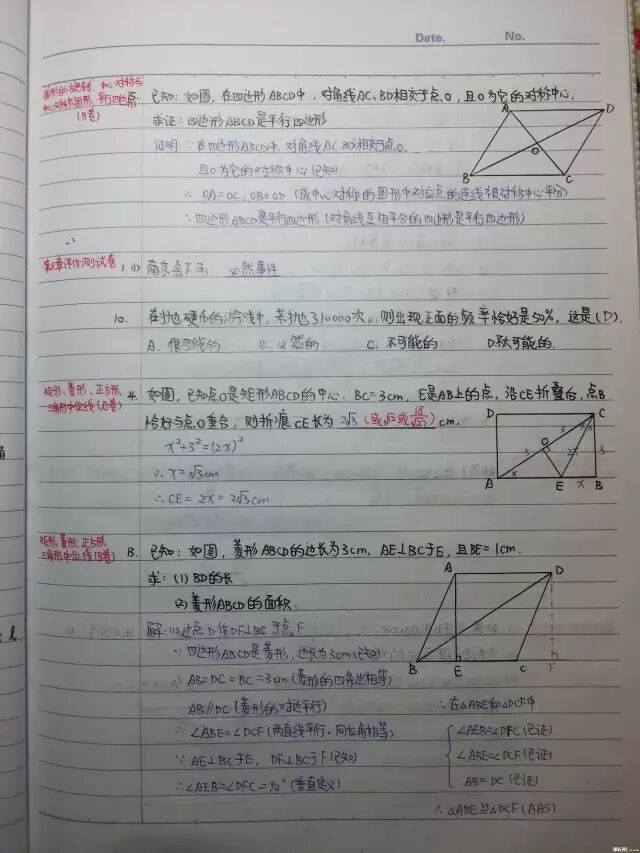 Date. No.
图形的旋转、中心对称与
中心对称图形、平行四边形
(B卷)
已知:如图,在四边形ABCD中,对角线AC、BD相交于点O,且O为它的对称中心.
求证:四边形ABCD是平行四边形
证明:∵在四边形ABCD中,对角线AC、BD相交于点O,
且O为它的对称中心(已知)
∴OA=OC,OB=OD(成中心对称的图形中对应点的连线被对称中心平分)
∴四边形ABCD是平行四边形(对角线互相平分的四边形是平行四边形)
A D
O
B C
第8章评价测试卷 1.(1) 南京会下雨: 必然事件
10. 在抛硬币的游戏中,若抛10000次,则出现正面的频率恰好是50%,这是(D).
A.很可能的 B.必然的 C.不可能的 D.不太可能的.
矩形、菱形、正方形、
三角形中位线(A卷)
4. 如图,已知点O是矩形ABCD的中心.BC=3cm,E是AB上的点,沿CE折叠后,点B
恰好与点O重合,则折痕CE长为2√3(或√12或18/√27)cm.
x²+3²=(2x)²
∴x=√3cm
∴CE=2x=2√3cm
D C
O 3
3 2x 3
A x E x B
矩形、菱形、正方形、
三角形中位线(B卷)
13. 已知:如图,菱形ABCD的边长为3cm,AE⊥BC于E,且BE=1cm.
求:(1)BD的长
(2)菱形ABCD的面积.
解:(1)过点D作DF⊥BC于点F
∵四边形ABCD是菱形,边长为3cm(已知)
∴AB=DC=BC=3cm(菱形的四条边相等)
AB∥DC(菱形的对边平行)
∴∠ABE=∠DCF(两直线平行,同位角相等)
∵AE⊥BC于E,DF⊥BC于F(已知)
∴∠AEB=∠DFC=90°(垂直定义)
A D
B E C F
∴在△ABE和△DCF中
∠AEB=∠DFC(已证)
∠ABE=∠DCF(已证)
AB=DC(已证)
∴△ABE≌△DCF(AAS)